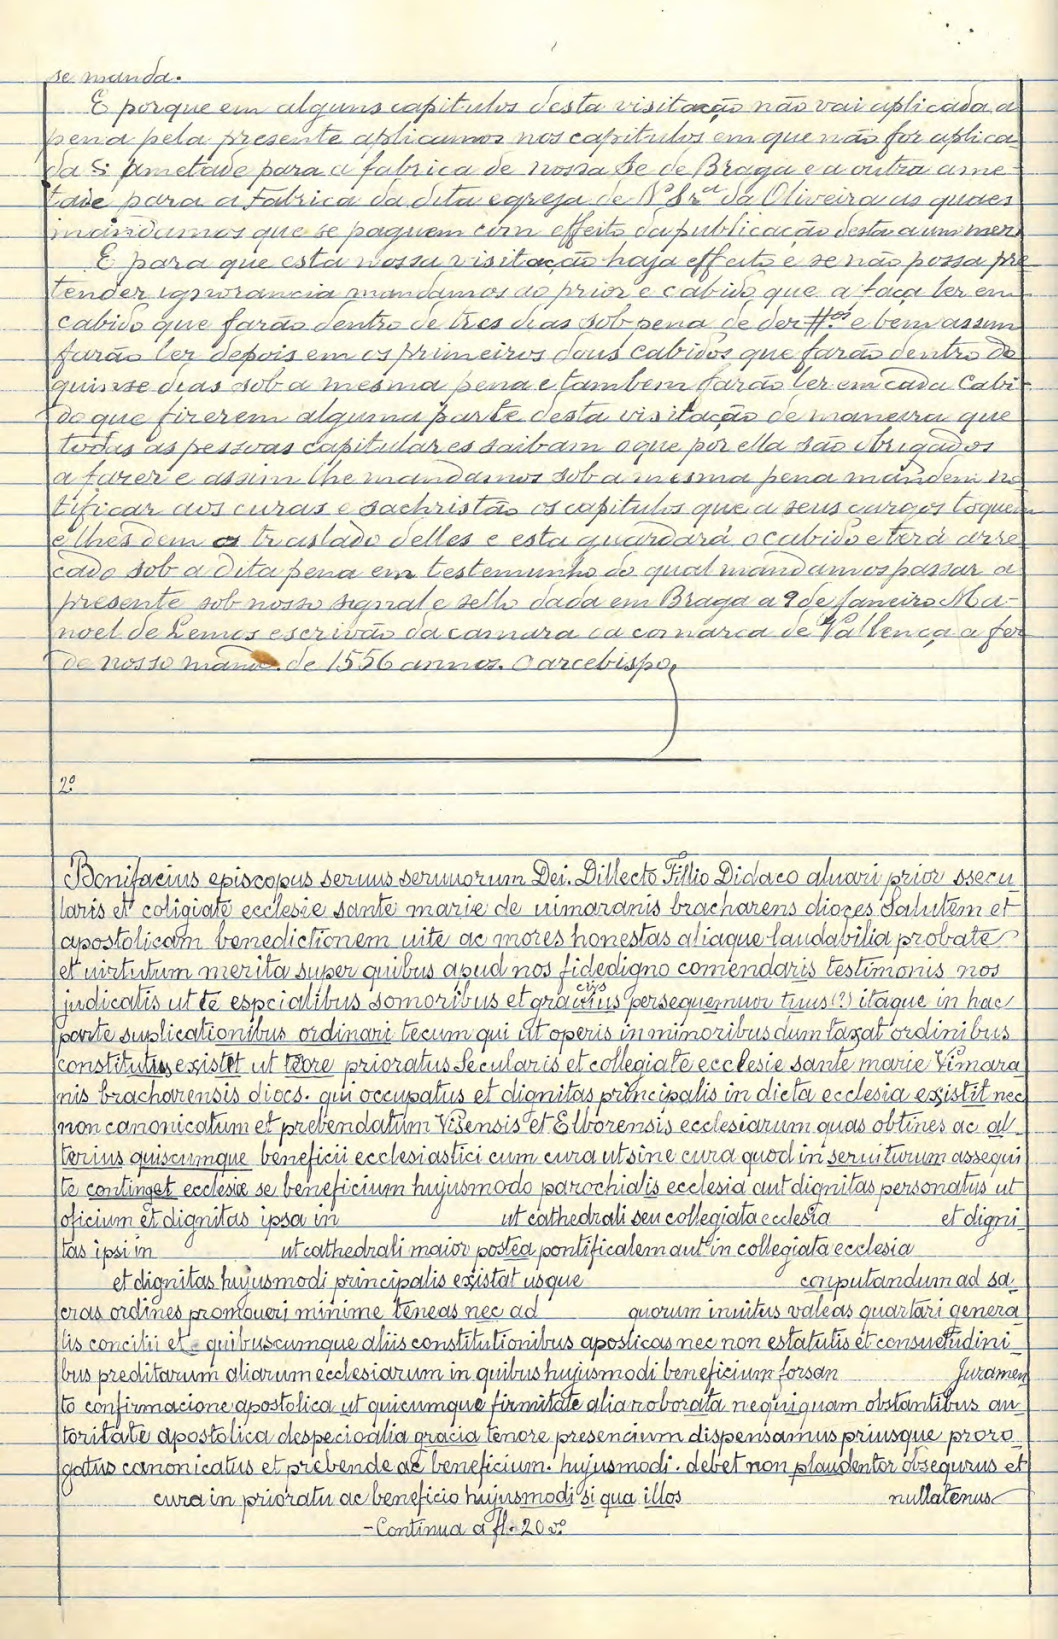 se manda.
E porque em alguns capitulos desta visitação não vai aplicada a
pena pela presente aplicamos nos capitulos em que não for aplica-
da S: Ametade para a fabrica de nossa Se de Braga e a outra ame-
tade para a Fabrica da dita egreja de Nª Srª da Oliveira as quaes
mandamos que se paguem com effeito da publicação desta a um mez
E para que esta nossa visitação haja effeito e se não possa pre
tender ignorancia mandamos ao prior e cabido que a faça ler em
cabido que farão dentro de tres dias sob pena de dez e bem assim
farão ler depois em os primeiros dous cabidos que farão dentro de
quinse dias sob a mesma pena e tambem farão ler em cada Cabi-
do que fizerem alguma parte desta visitação de maneira que
todas as pessoas capitulares saibam o que por ella são obrigados
a fazer e assim lhe mandamos sob a mesma pena mandem no
tificar aos curas e sachristão os capitulos que a seus cargos toquem
e lhes dem os traslado delles e esta guardará o cabido e terá arre
cado sob a dita pena em testemunho do qual mandamos passar a
presente sob nosso signal e sello dada em Braga a 9 de Janeiro Ma-
noel de Lemos escrivão da camara da comarca de Vallença a fez
de nosso mand. de 1556 annos. O arcebispo.
2º
Bonifacius episcopus seruus seruuorum Dei. Dillecto Fillio Didaco aluari prior ssecu
laris et coligiate ecclesie sante marie de uimaranis bracharens dioces Salutem et
apostolicam benedictionem uite ac mores honestas aliaque laudabilia probate
et uirtutum merita super quibus apud nos fidedigno comendaris testimonis nos
judicatis ut te espcialibus somoribus et gracuius persequemuor tuus (?) itaque in hac
cijs
parte suplicationibus ordinari tecum qui ut operis in minoribus dum taxat ordinibus
constitutus existet ut teore prioratus Secularis et collegiate ecclesie sante marie Vimara
nis bracharensis diocs. qui occupatus et dignitas principalis in dicta ecclesia existit nec
non canonicatum et prebendatum Visensis et Elborensis ecclesiarum quas obtines ac al-
terius quiscumque beneficii ecclesiastici cum cura ut sine cura quod in seruiturum assequi
te continget ecclesiæ se beneficium hujusmodo parochialis ecclesia aut dignitas personatus ut
oficium et dignitas ipsa in ut cathedrali seu collegiata ecclesia et digni-
tas ipsi in ut cathedrali maior postea pontificalem aut in collegiata ecclesia
et dignitas hujusmodi principalis existat usque conputandum ad sa-
cras ordines promoueri minime teneas nec ad quorum inuitus valeas quartari genera
lis concilii et quibuscumque aliis constitutionibus aposticas nec non estatutis et consuetudini-
bus preditarum aliarum ecclesiarum in quibus hujusmodi beneficium forsan Juramen
to confirmacione apostolica ut quicumque firmitate alia roborata nequiquam obstantibus au-
toritate apostolica despecioalia gracia tenore presencium dispensamus priusque proro-
gatus canonicatus et prebende ac beneficium. hujusmodi. debet non plaudentor obsequrus et
cura in prioratu ac beneficio hujusmodi si qua illos nullatenus
- Continua a fl. 20 vº